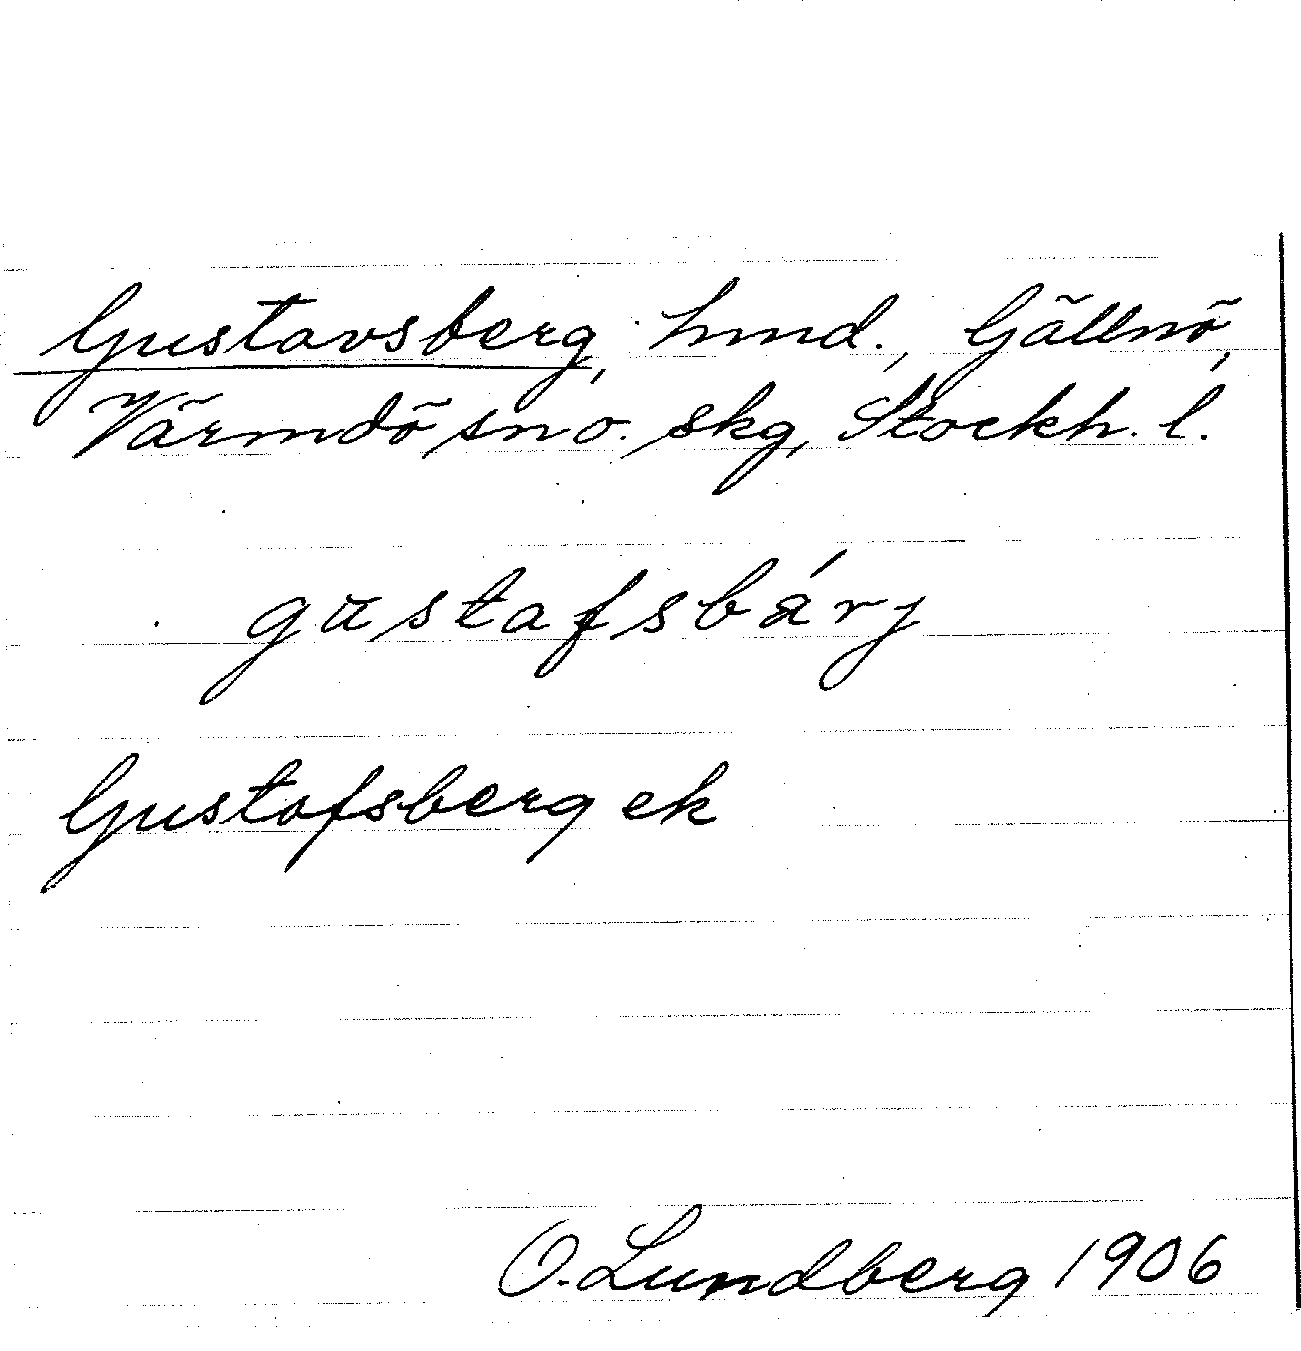 Gustavsberg, hmd., Gällnö,
Värmdö sn o. skg, Stockh. l.
gustafsbárj
Gustafsberg ek
O. Lundberg 1906